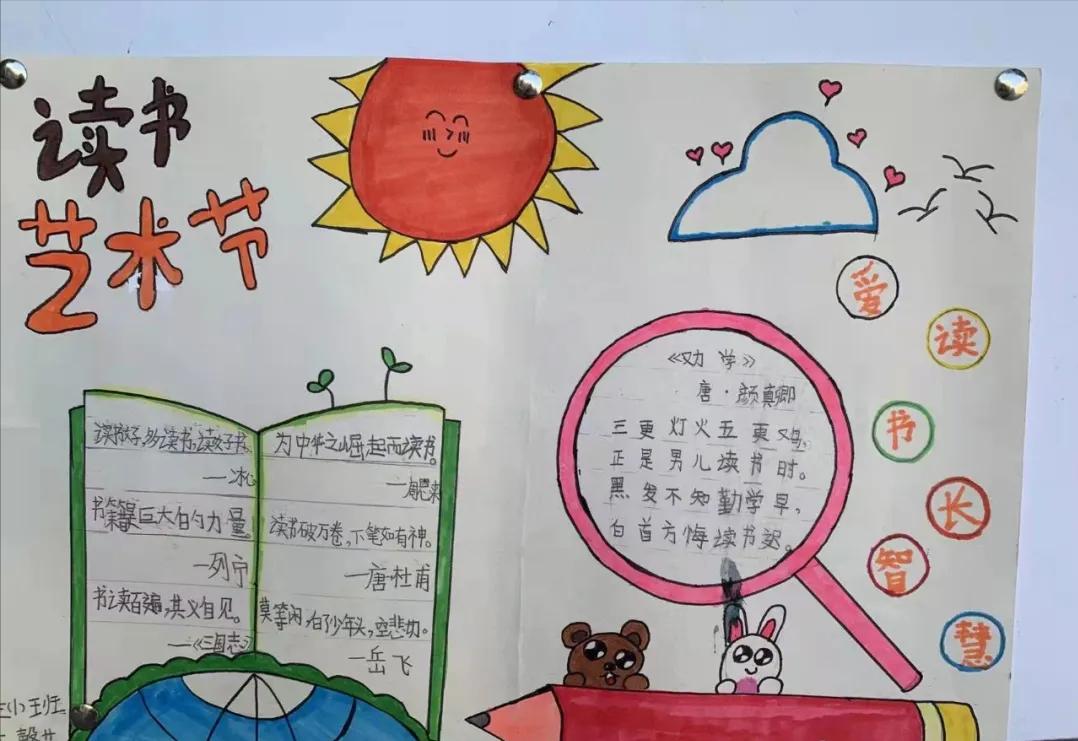 读书
艺术节
读书好,多读书,读好书。
—冰心
书籍是巨大的力量。
—列宁
书读百遍,其义自见。
—《三国志》
为中华之崛起而读书。
—周恩来
读书破万卷,下笔如有神。
—唐·杜甫
莫等闲,白了少年头,空悲切。
—岳飞
《劝学》
唐·颜真卿
三更灯火五更鸡,
正是男儿读书时。
黑发不知勤学早,
白首方悔读书迟。
爱
读
书
长
智
慧